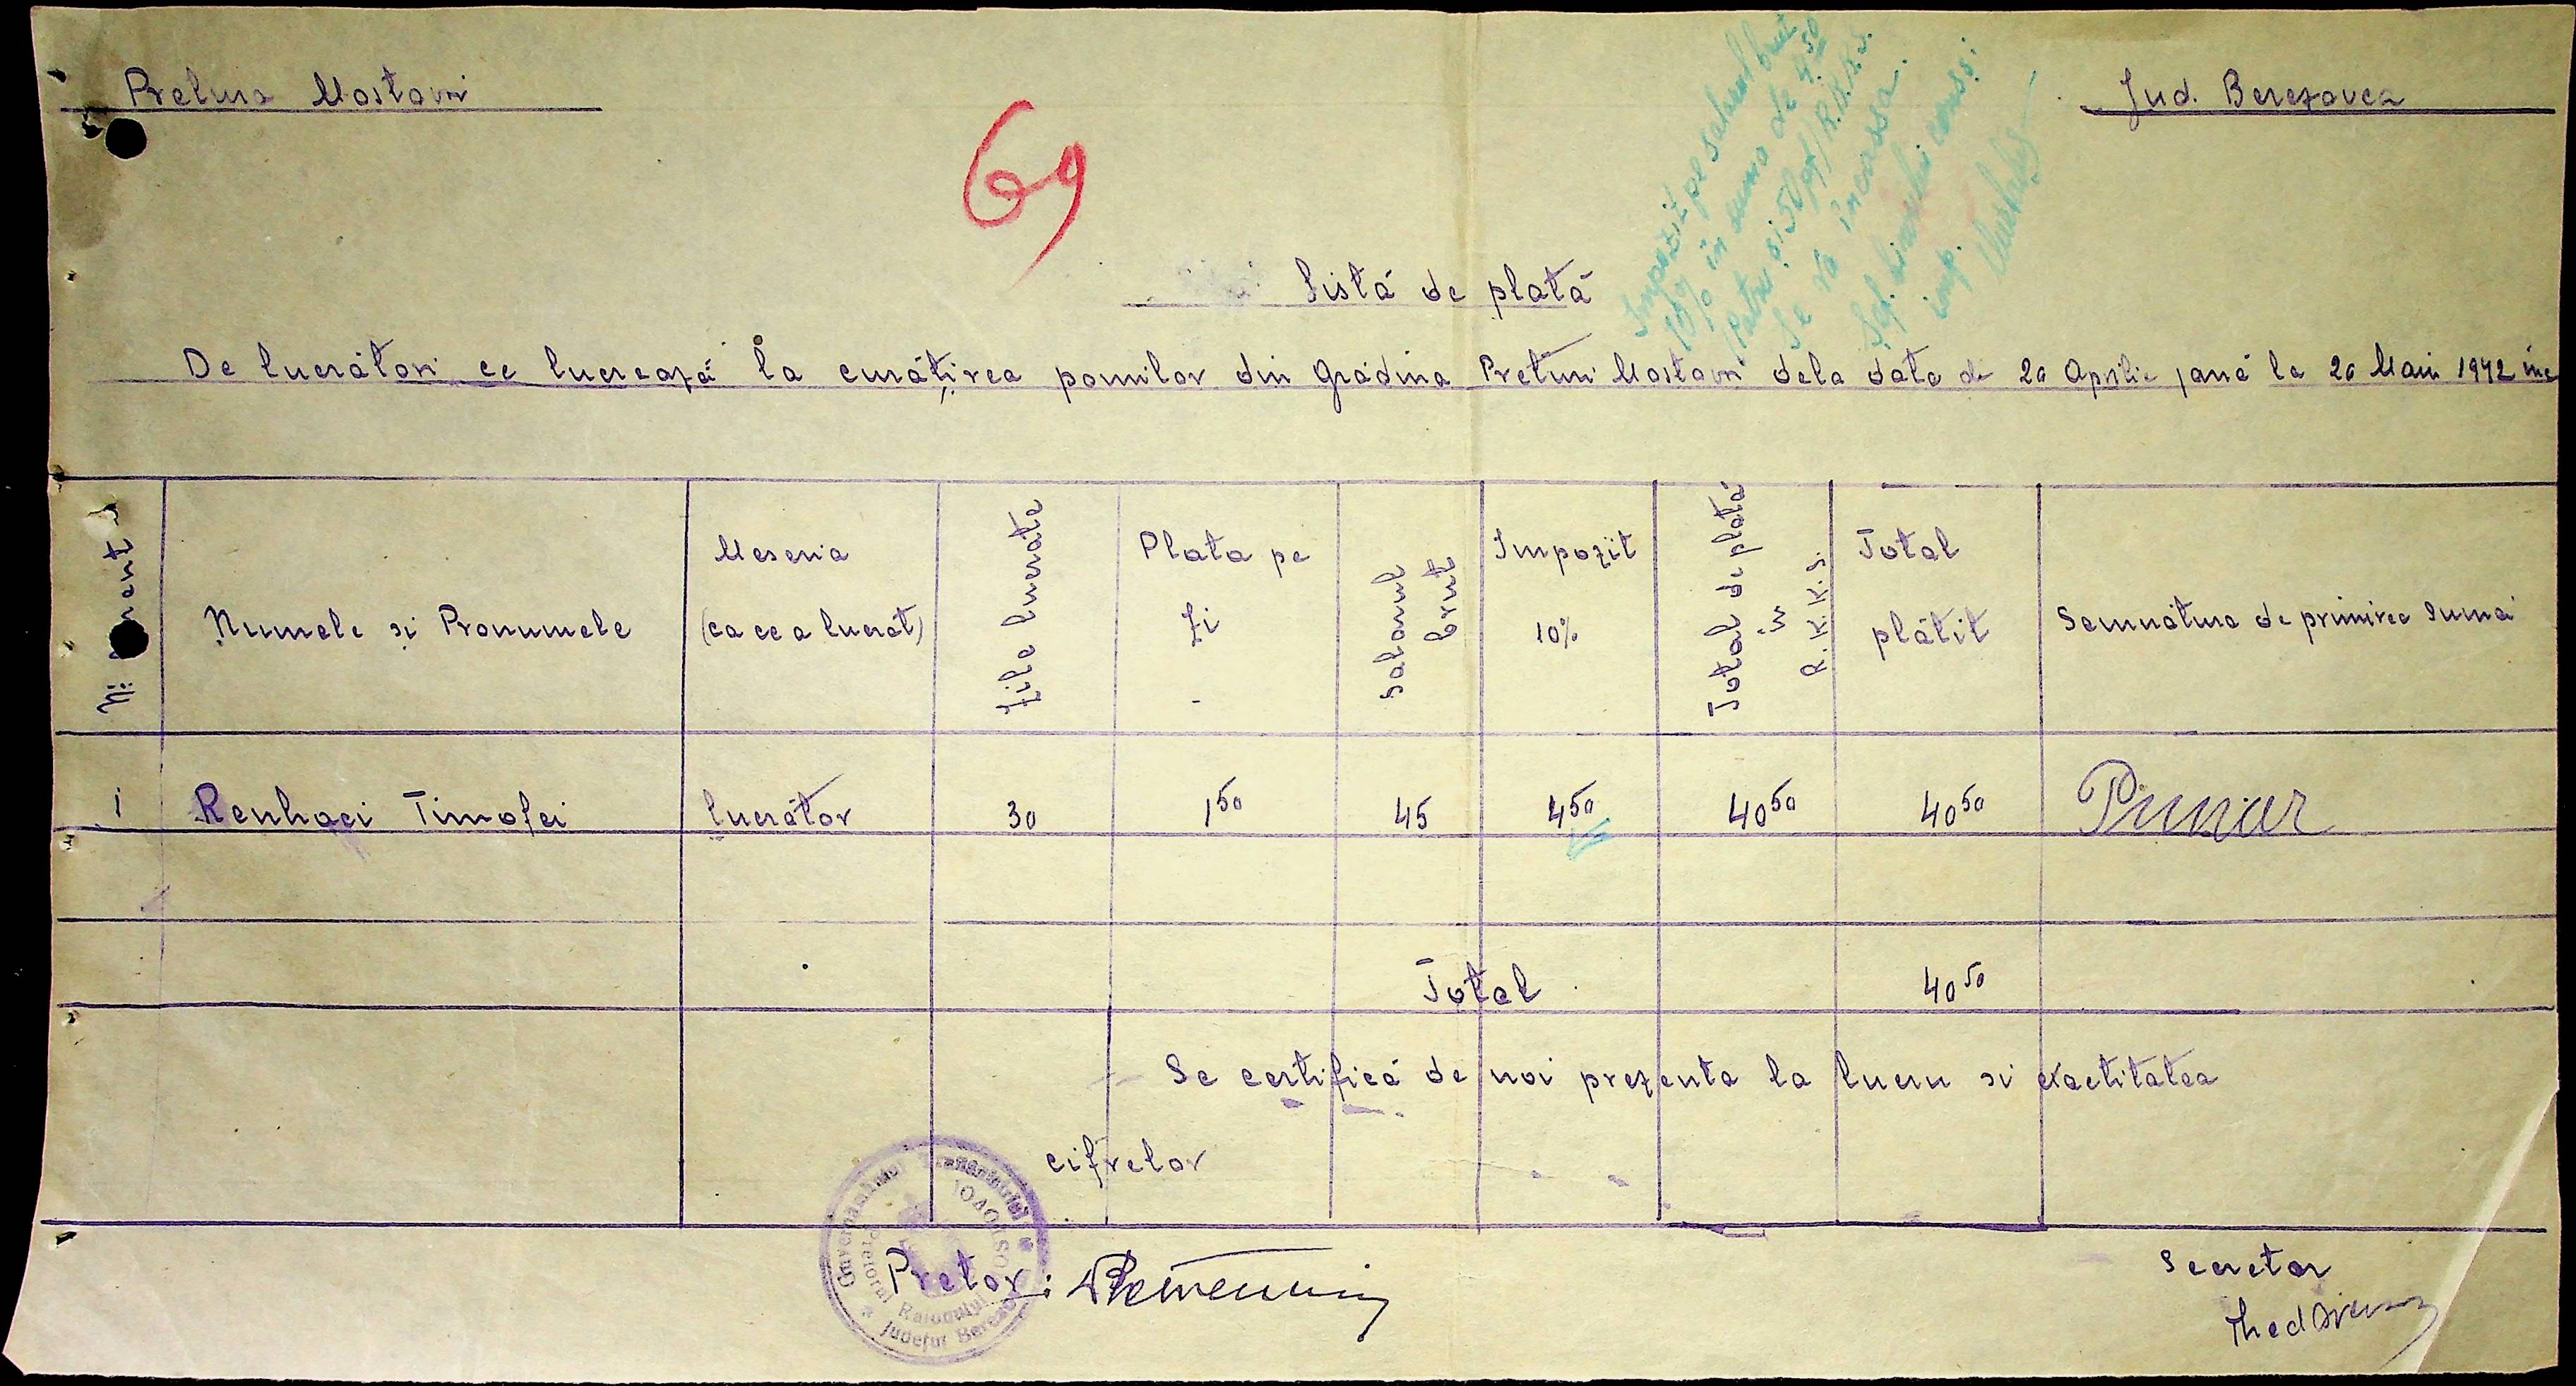 Pretura Mostovoi
Jud. Berezovca
69
Impozit pe salariul brut
10% în suma de 4.50
(Patru și 50 pf) R.K.K.S.
Se va încassa.
imp.
Listă de plată
De lucrători ce lucrează la curățirea pomilor din grădina Preturi Mostovoi dela data de 20 Aprilie pană la 20 Maiu 1942 inc
Nr. curent
Numele și Pronumele
Meseria
(ca ce a lucrat)
Zile lucrate
Plata pe
Zi
Salariul
brut
Impozit
10%
Total de plată
în
R.K.K.S.
Total
plătit
Semnătura de primirea suma
1 Renhaci Timofei lucrător 30 1 50 45 4 50 40 50 40 50
Total 40 50
Se certifică de noi prezenta la lucru si exactitatea
cifrelor
Guvernământul Transnistriei
Pretorul Raionului
Județul Berezovca
Pretor:
Secretar